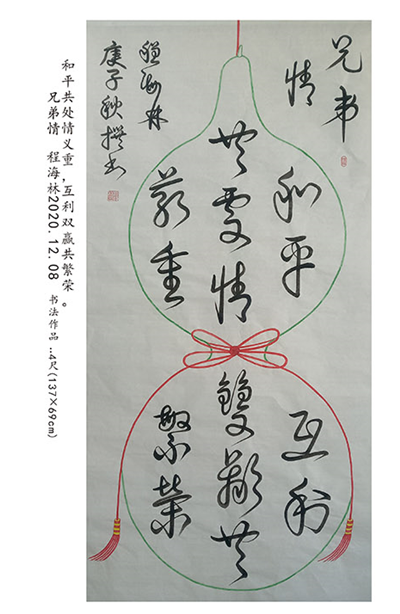 兄弟
情
和平
共處情
義重
互利
雙贏共
繁榮
程海林
庚子秋撰书
和平共处情义重,互利双赢共繁荣。
兄弟情 程海林2020.12.08 书法作品 ..4尺(137×69cm)